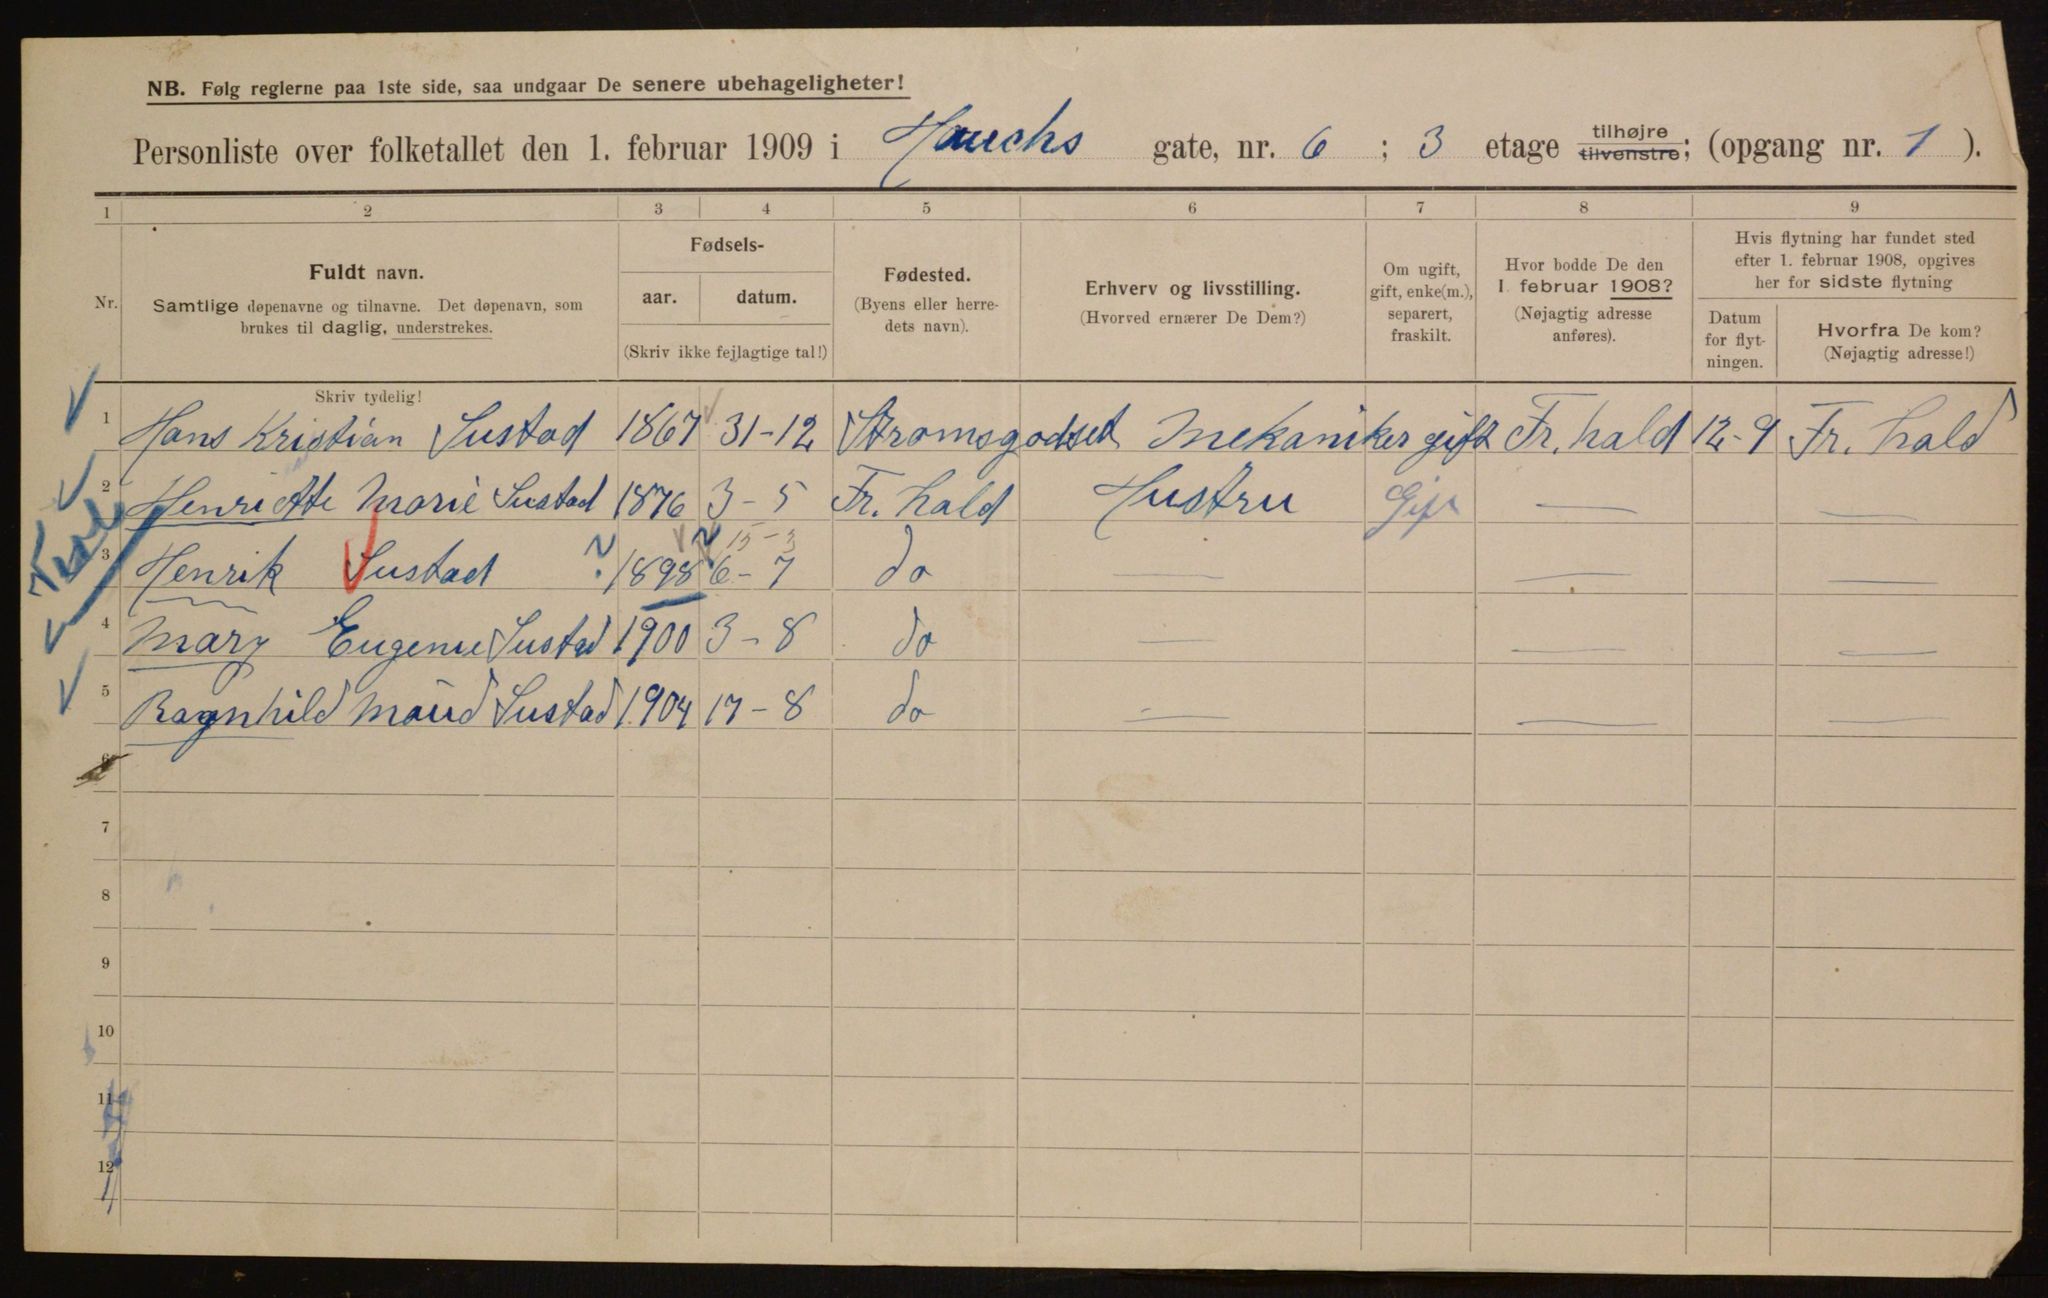 NB. Følg reglerne paa 1ste side, saa undgaar De senere ubehageligheter!
Personliste over folketallet den 1. februar 1909 i Hauchs gate, nr. 6 ; 3 etage tilhøjre tilvenstre; (opgang nr. 1 ).
1 2 3 4 5 6 7 8 9
Nr.
Fuldt navn.
Samtlige døpenavne og tilnavne. Det døpenavn, som
brukes til daglig, understrekes.
Fødsels-
aar. datum.
(Skriv ikke fejlagtige tal!)
Fødested.
(Byens eller herre-
dets navn).
Erhverv og livsstilling.
(Hvorved ernærer De Dem?)
Om ugift,
gift, enke(m.),
separert,
fraskilt.
Hvor bodde De den
1. februar 1908?
(Nøjagtig adresse
anføres).
Hvis flytning har fundet sted
efter 1. februar 1908, opgives
her for sidste flytning
Datum
for flyt-
ningen.
Hvorfra De kom?
(Nøjagtig adresse!)
Skriv tydelig!
1 Hans Kristian Sustad 1867 31-12 Strømsgodset Mekaniker gift Fr. hald 12-9 Fr. hald
2 Henriette Marie Sustad 1876 3-5 Fr. hald Hustru Gift — —
15-3
3 Henrik Sustad ? 1898 6-7 do — — —
4 Mary Eugenie Sustad 1900 3-8 do — — —
5 Ragnhild Maud Sustad 1904 17-8 do — — —
6
7
8
9
10
11
12